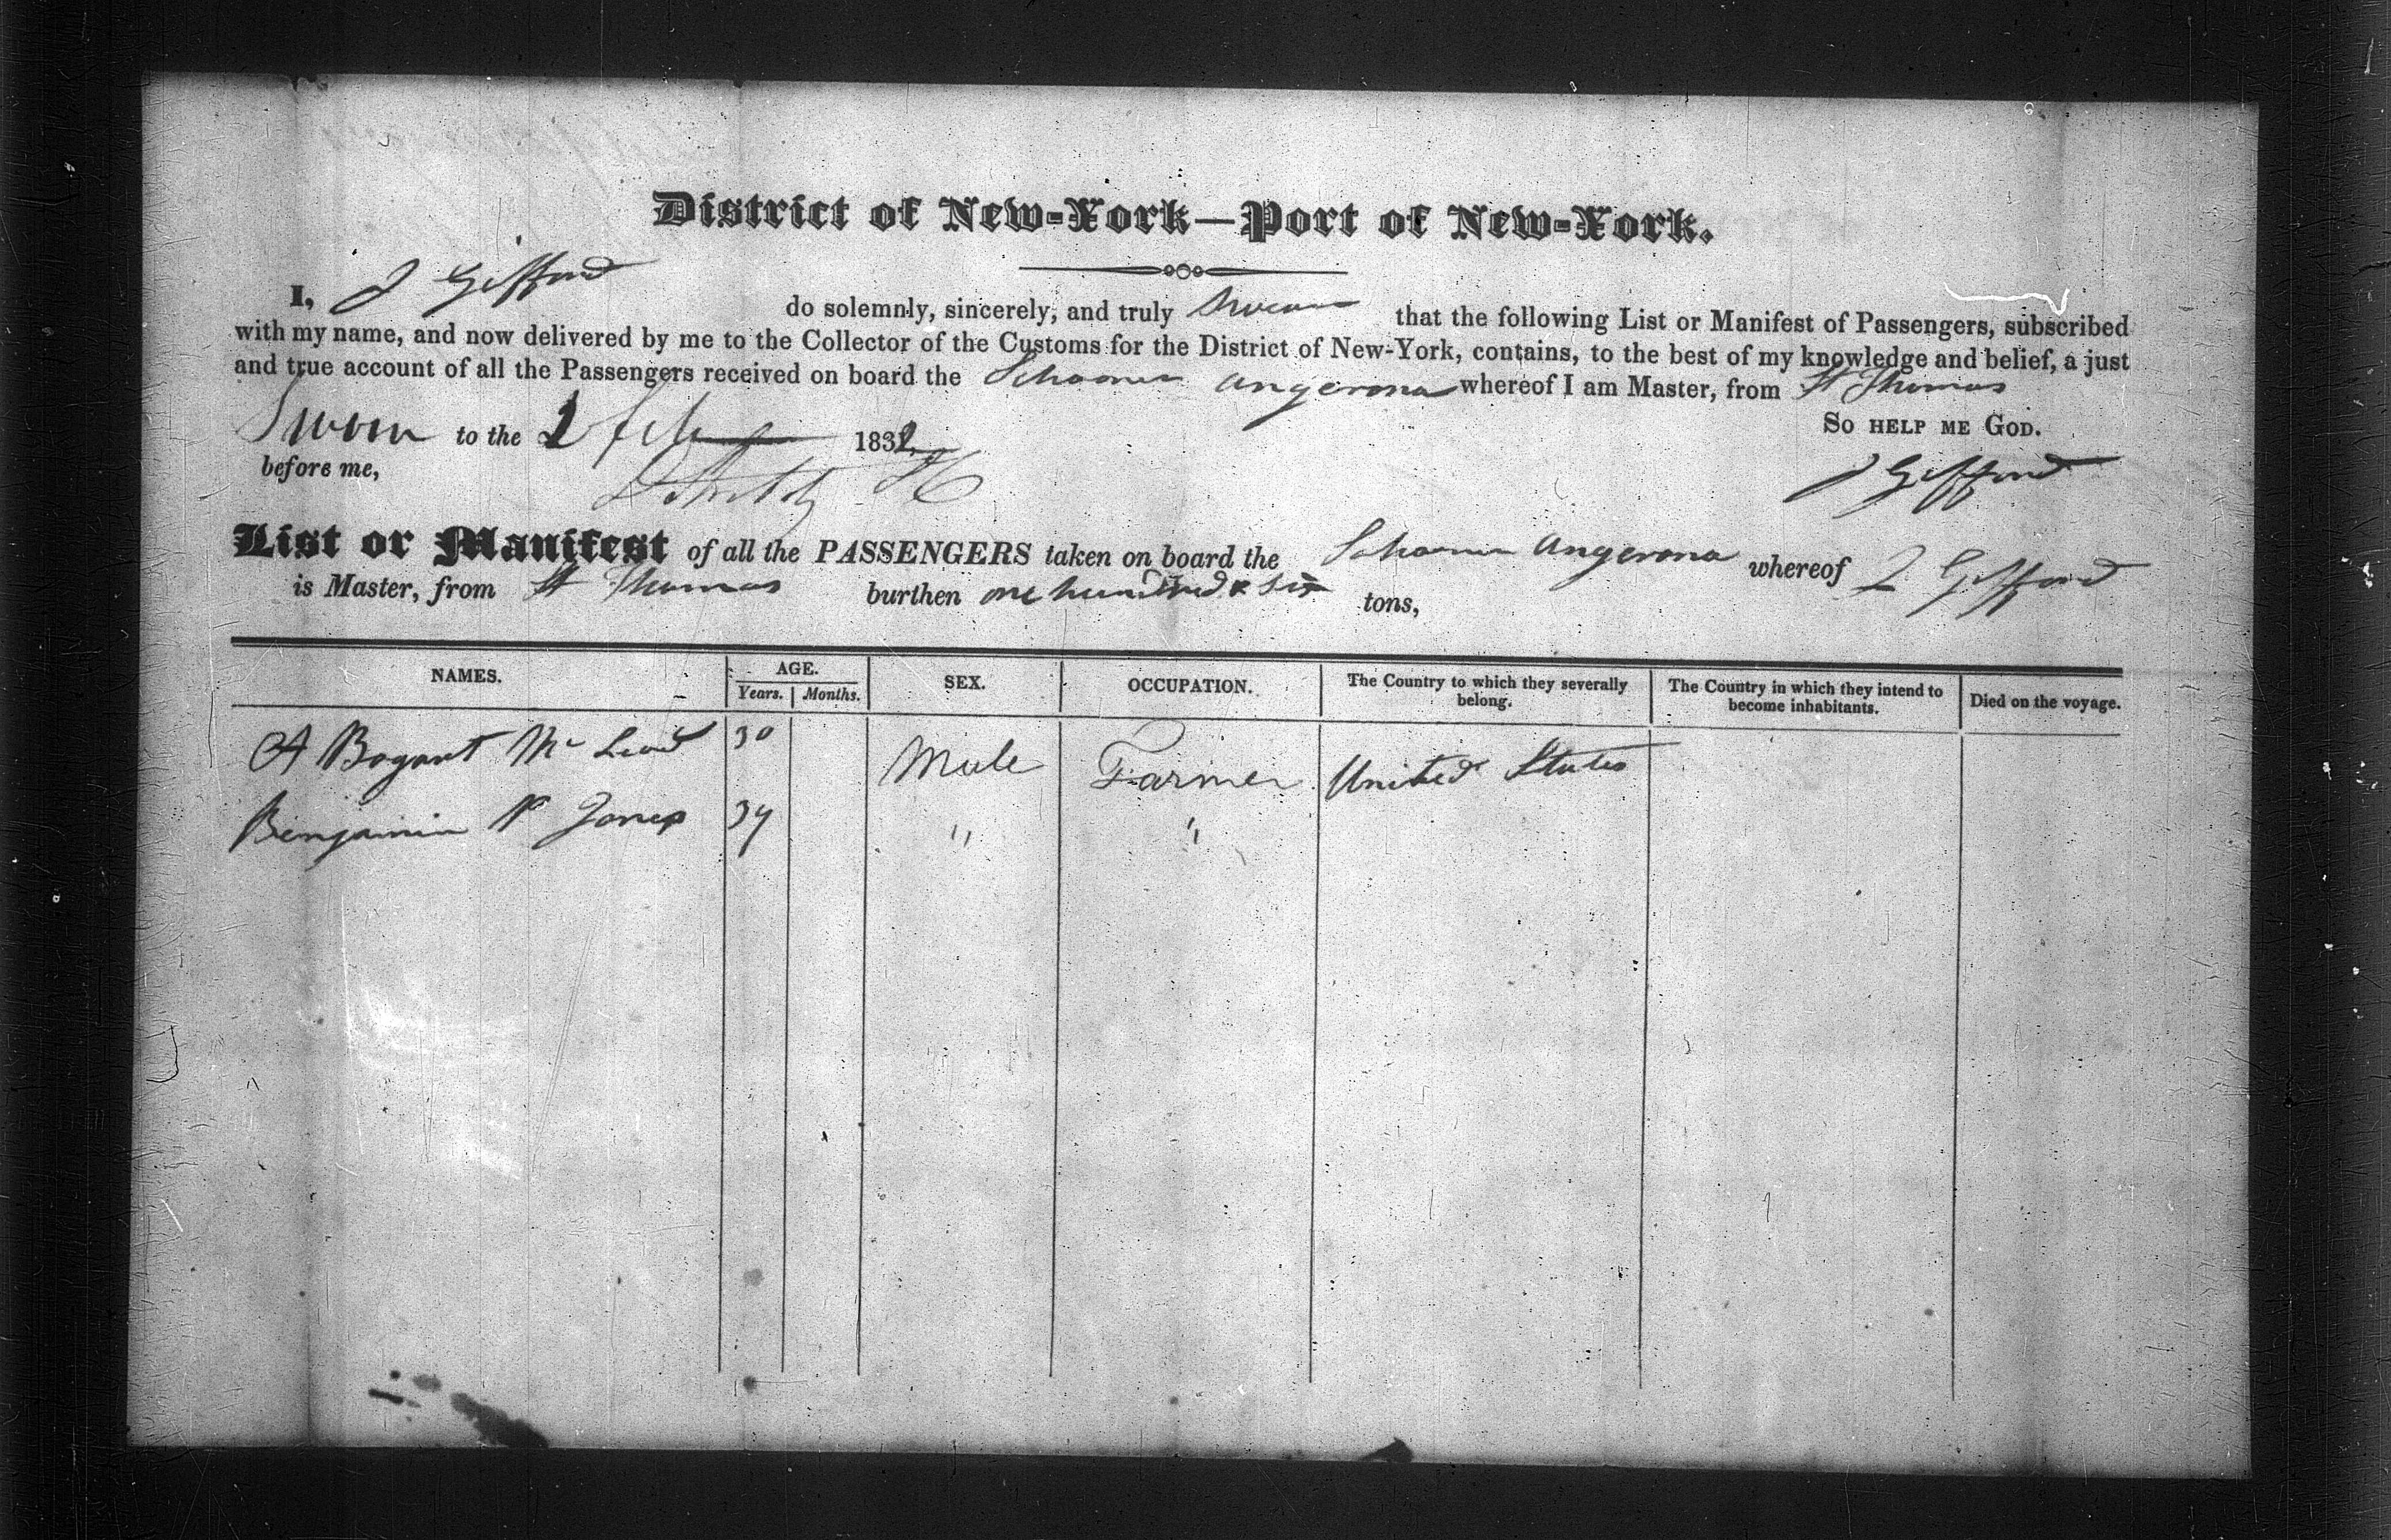 District of New-York—Port of New-York.
I, J Gifford do solemnly, sincerely, and truly swear that the following List or Manifest of Passengers, subscribed
with my name, and now delivered by me to the Collector of the Customs for the District of New-York, contains, to the best of my knowledge and belief, a just
and true account of all the Passengers received on board the Schooner Angerona whereof I am Master, from St Thomas
So help me God.
Sworn to the 2 Feb 1832
before me,
J Gifford
List or Manifest of all the PASSENGERS taken on board the Schooner Angerona whereof J Gifford
is Master, from St Thomas burthen one hundred & six tons,
NAMES. AGE. Years. Months. SEX. OCCUPATION. The Country to which they severally belong. The Country in which they intend to become inhabitants. Died on the voyage.
A Bogart Mc Leod 30 Male Farmer United States
Benjamin P Jones 34 " "